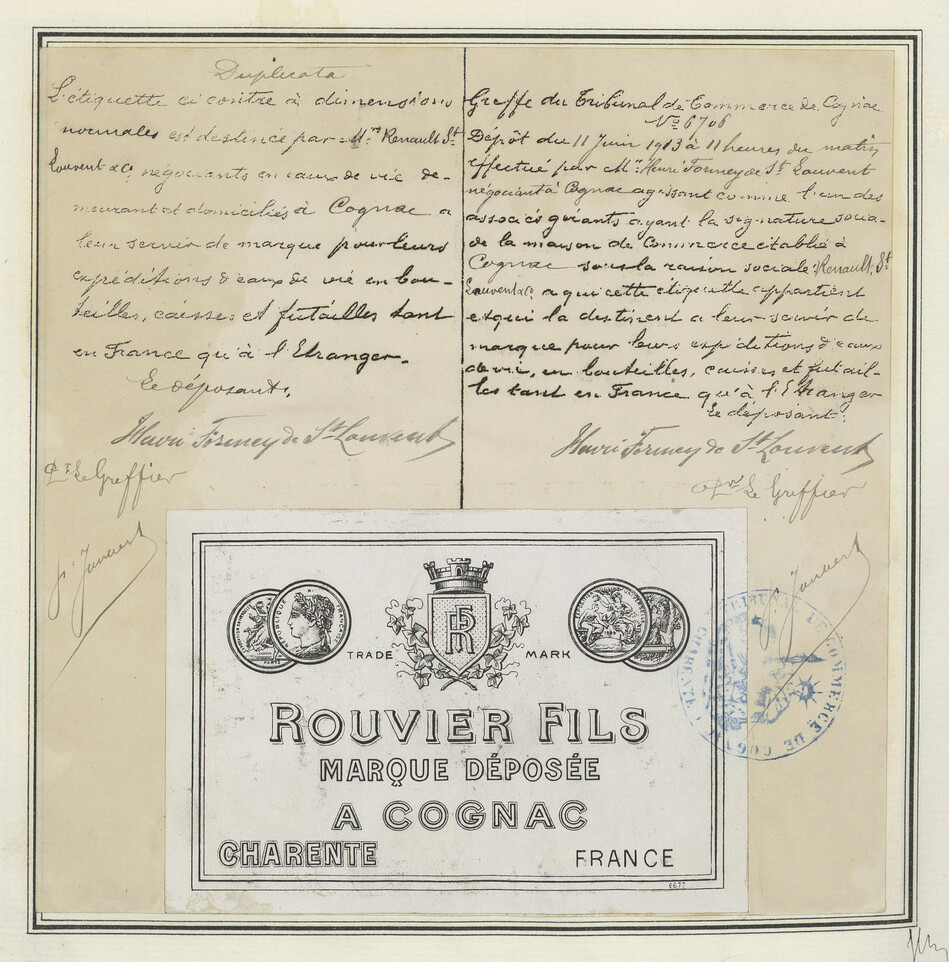 Duplicata
L'étiquette ci contre à dimensions
normales est destinée par MM.rs Renault St
Louvent & Co. négociants en eaux de vie de-
meurant et domiciliés à Cognac a
leur servir de marque pour leurs
expéditions d'eaux de vie en bou-
teilles, caisses et futailles tant
en France qu'à l'Etranger.
Le déposant,
Henri Formey de St Louvent
Pr Le Greffier
Greffe du Tribunal de Commerce de Cognac
No 6706
Dépôt du 11 Juin 1913 à 11 heures du matin
effectué par Mr Henri Formey de St Louvent
négociant à Cognac agissant comme l'un des
associés gérants ayant la signature socia-
de la maison de Commerce établie à
Cognac sous la raison sociale: Renault, St
Louvent & Co. a qui cette etiquette appartient
et qui la destinent a leur servir de
marque pour leurs expéditions d'eaux
de vie, en bouteilles, caisses et futail-
les tant en France qu'à l'Etranger
Le déposant:
Henri Formey de St Louvent
Pr Le Greffier
TRADE MARK
RÉPUBLIQUE FRANÇAISE
ROUVIER FILS
MARQUE DÉPOSÉE
A COGNAC
CHARENTE FRANCE
6677
TRIBUNAL DE COMMERCE DE COGNAC